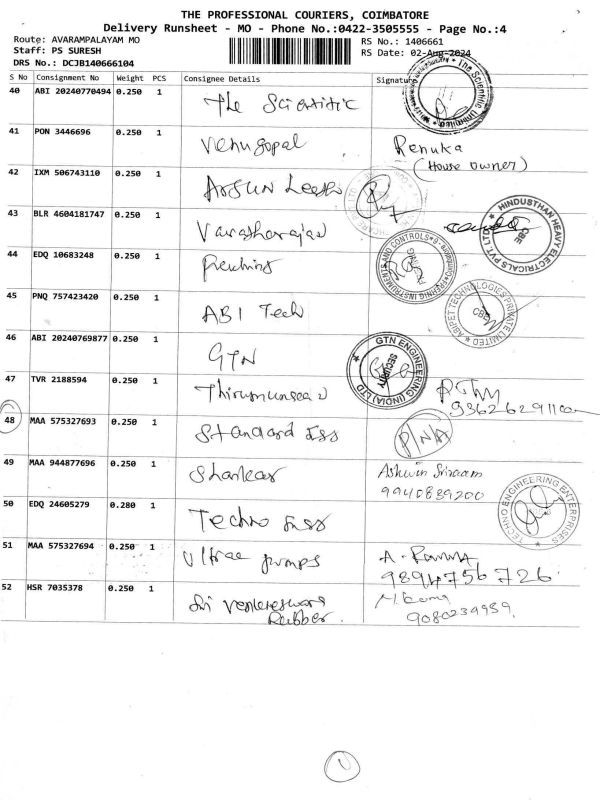 THE PROFESSIONAL COURIERS, COIMBATORE
Delivery Runsheet - MO - Phone No.:0422-3505555 - Page No.:4
Route: AVARAMPALAYAM MO
RS No.: 1406661
Staff: PS SURESH
RS Date: 02-Aug-2024
DRS No.: DCJB140666104
S No Consignment No Weight PCS Consignee Details Signature
40 ABI 20240770494 0.250 1 The Scientific
41 PON 3446696 0.250 1 Venugopal Renuka
(House owner)
42 IXM 506743110 0.250 1 Arjun
43 BLR 4604181747 0.250 1 Varatharajas
HINDUSTHAN HEAVY ELECTRICALS PVT LTD
CBE
44 EDQ 10683248 0.250 1
INSTRUMENTS AND CONTROLS
45 PNQ 757423420 0.250 1 ABI Tech
ABIPET TECHNOLOGIES PRIVATE LIMITED
CBE
46 ABI 20240769877 0.250 1 GTN
GTN ENGINEERING (INDIA) LTD
SECURITY
47 TVR 2188594 0.250 1
48 MAA 575327693 0.250 1 Standard Egs P/N/A
49 MAA 944877696 0.250 1 Shankar Ashwin Sriraam
9940839200
50 EDQ 24605279 0.280 1 Techno Engs
TECHNO ENGINEERING ENTERPRISES
51 MAA 575327694 0.250 1 Ultra pumps
9894756726
52 HSR 7035378 0.250 1 Sri Venkateswara
Rubber
9080234959